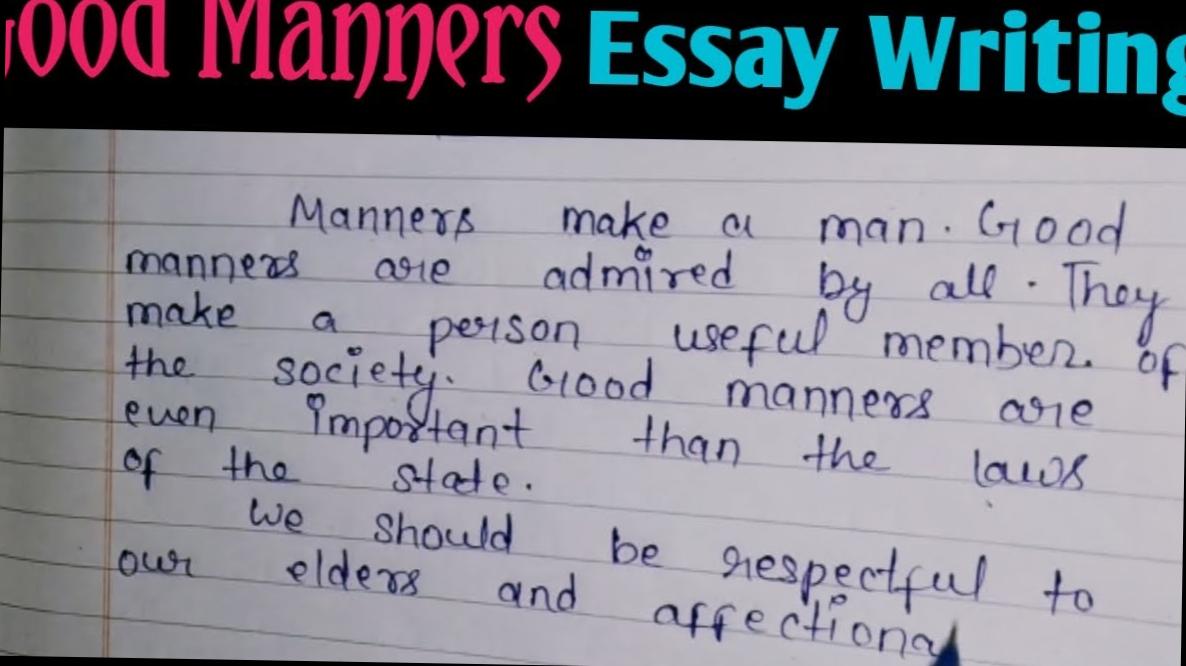 Good Manners Essay Writing
Manners make a man. Good
manners are admired by all. They
make a person useful member. of
the society. Good manners are
even important than the laws
of the state.
We should be respectful to
our elders and affectiona